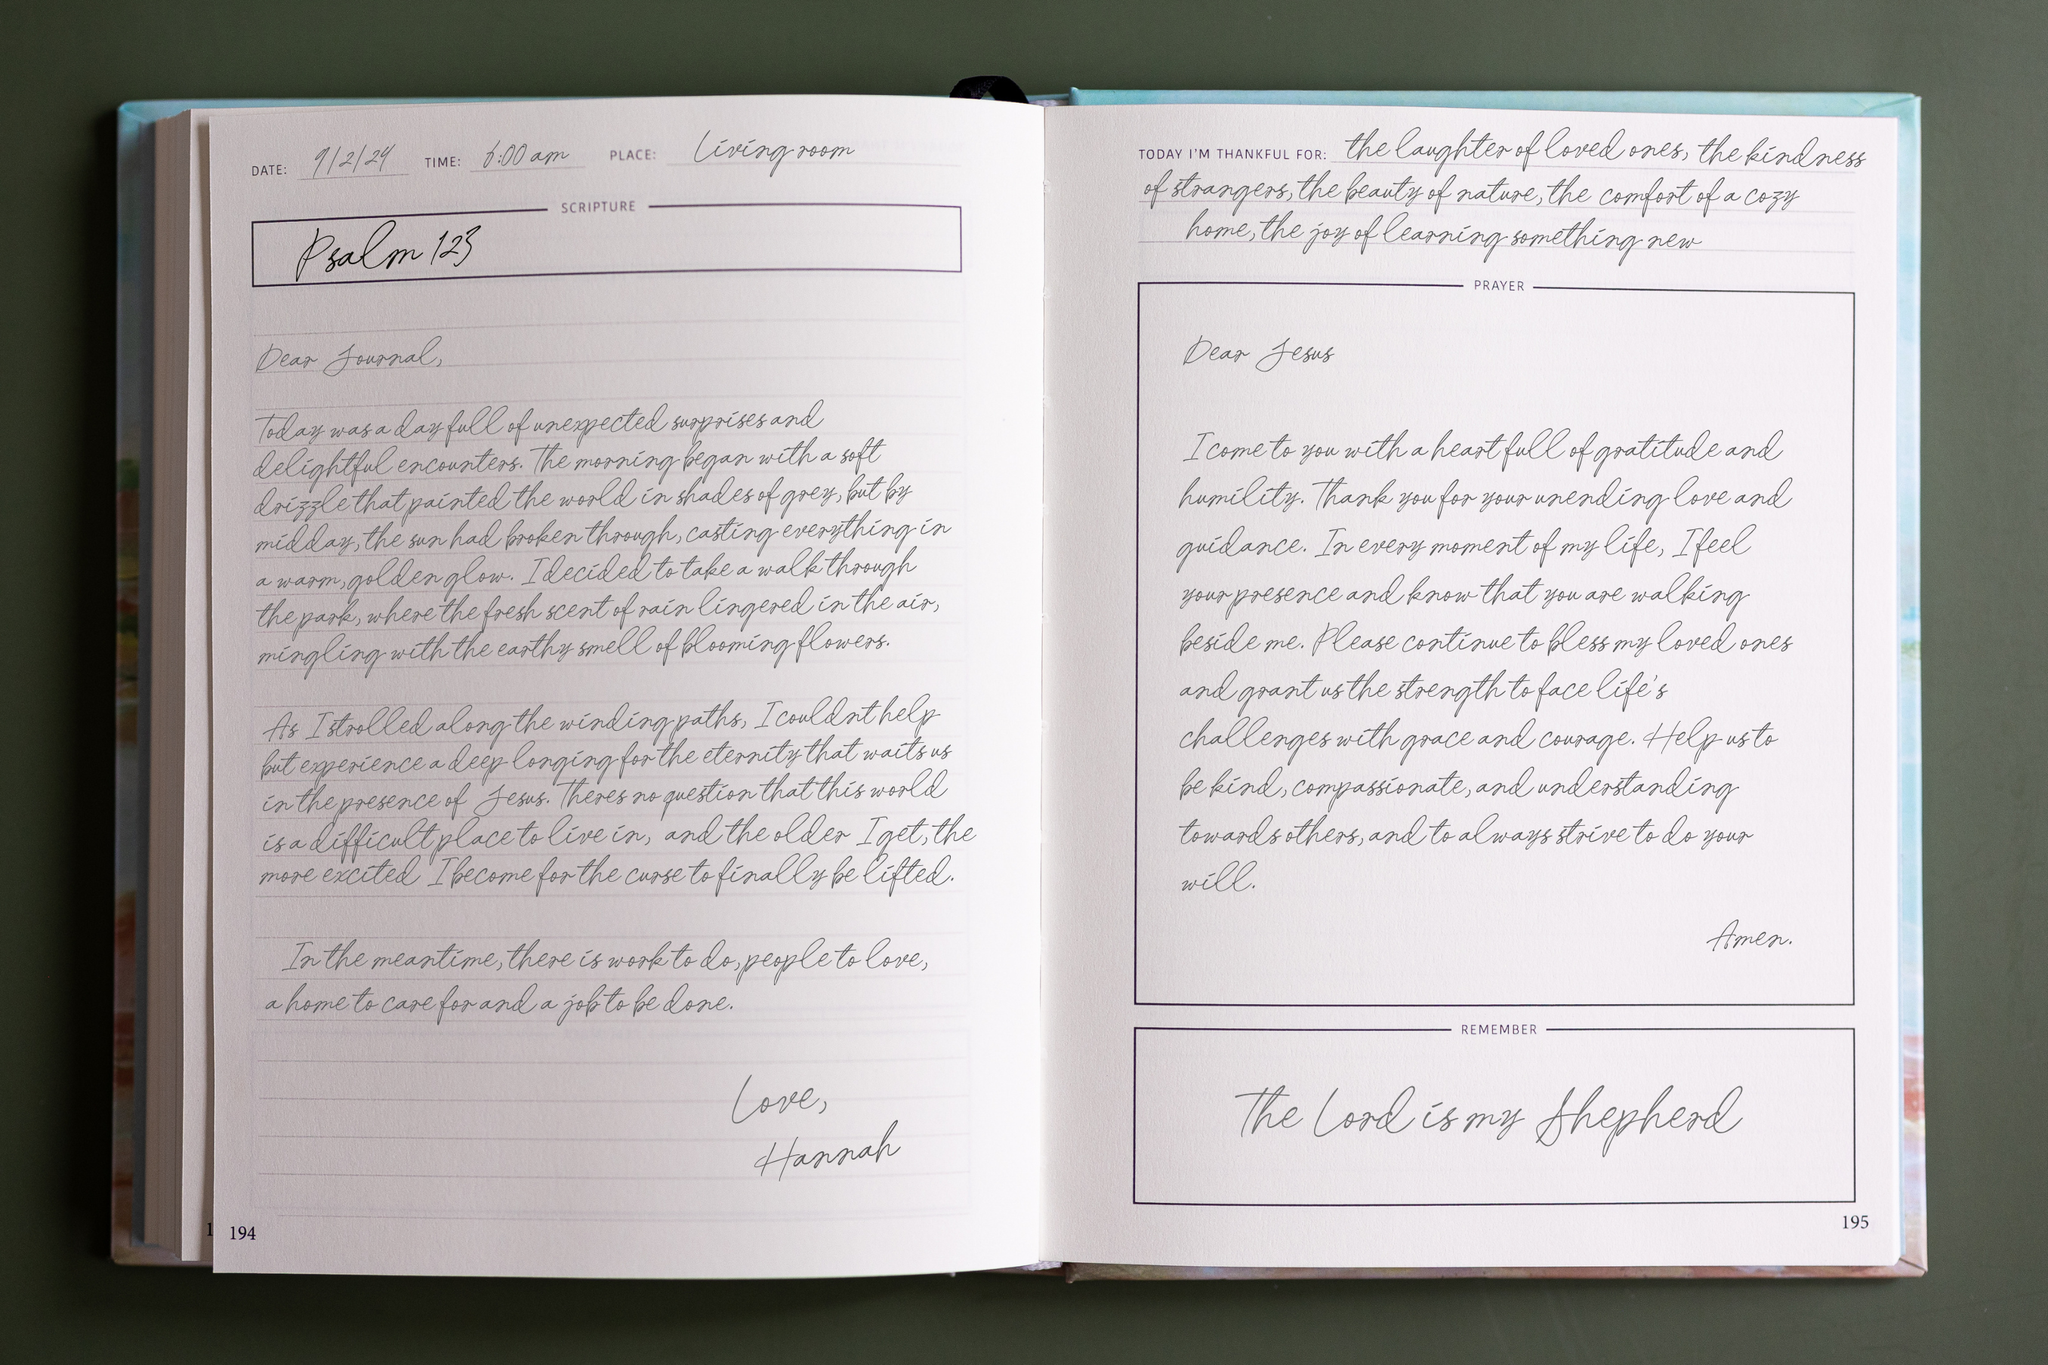 DATE: 9/2/24 TIME: 6:00 am PLACE: Living room
SCRIPTURE
Psalm 123
Dear Journal,
Today was a day full of unexpected surprises and
delightful encounters. The morning began with a soft
drizzle that painted the world in shades of grey, but by
midday, the sun had broken through, casting everything in
a warm, golden glow. I decided to take a walk through
the park, where the fresh scent of rain lingered in the air,
mingling with the earthy smell of blooming flowers.
As I strolled along the winding paths, I couldnt help
but experience a deep longing for the eternity that waits us
in the presence of Jesus. Theres no question that this world
is a difficult place to live in, and the older I get, the
more excited I become for the curse to finally be lifted.
In the meantime, there is work to do, people to love,
a home to care for and a job to be done.
Love,
Hannah
194
TODAY I'M THANKFUL FOR: the laughter of loved ones, the kindness
of strangers, the beauty of nature, the comfort of a cozy
home, the joy of learning something new
PRAYER
Dear Jesus
I come to you with a heart full of gratitude and
humility. Thank you for your unending love and
guidance. In every moment of my life, I feel
your presence and know that you are walking
beside me. Please continue to bless my loved ones
and grant us the strength to face life's
challenges with grace and courage. Help us to
be kind, compassionate, and understanding
towards others, and to always strive to do your
will.
Amen.
REMEMBER
The Lord is my Shepherd
195